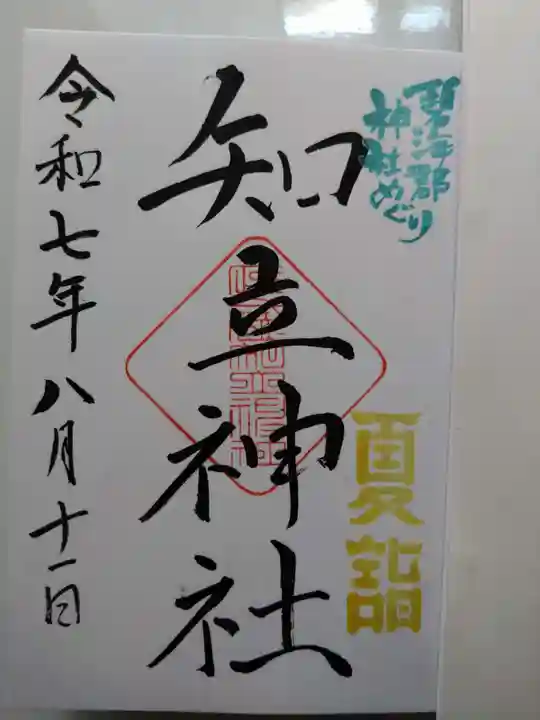 碧海郡
神社めぐり
知立神社
夏詣
令和七年八月十一日